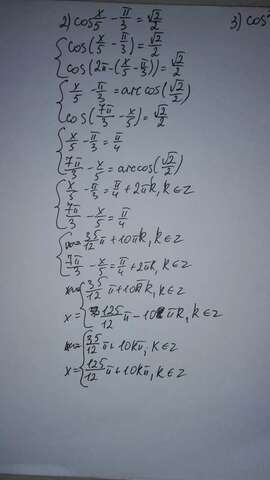 2) cos x/5 - π/3 = √2/2 3) cos
{ cos(x/5 - π/3) = √2/2
cos(2π-(x/5 - π/3)) = √2/2
{ x/5 - π/3 = arccos(√2/2)
cos(7π/3 - x/5) = √2/2
{ x/5 - π/3 = π/4
7π/3 - x/5 = arccos(√2/2)
{ x/5 - π/3 = π/4 + 2πk, k∈z
7π/3 - x/5 = π/4
{ 35/12 π + 10πk, k∈z
7π/3 - x/5 = π/4 + 2πk, k∈z
{ 35/12 π + 10πk, k∈z
x = 125/12 π - 10πk, k∈z
{ 35/12 π + 10kπ, k∈z
x = 125/12 π + 10kπ, k∈z